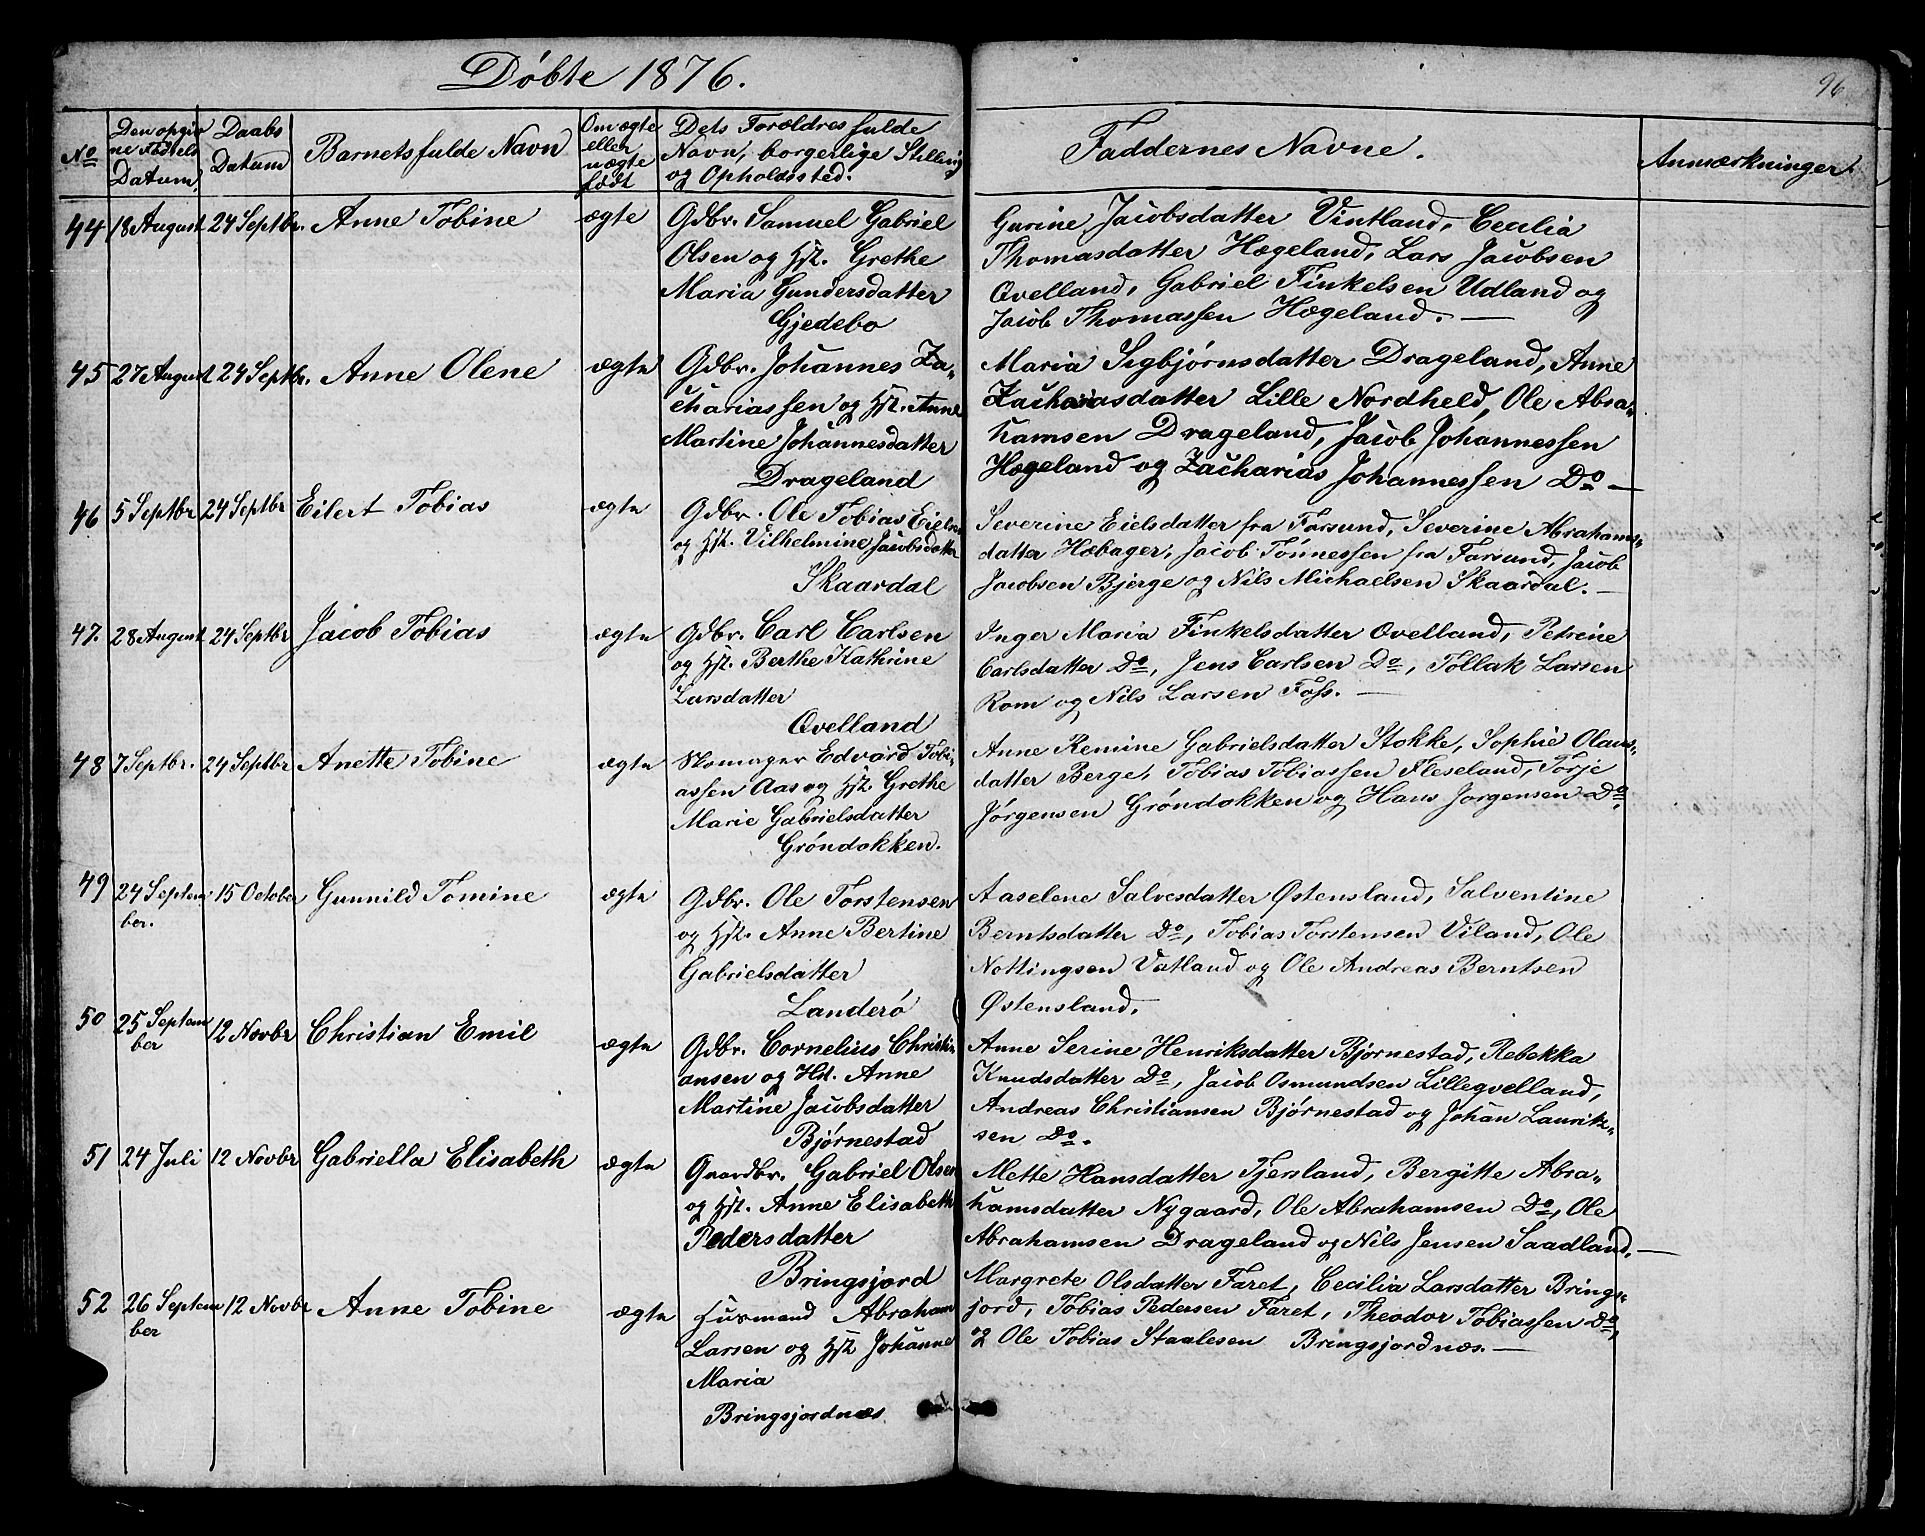 Døbte 1876.
96
No
Den opgiv
ne Fødsels
Datum
Daabs
Datum
Barnets fulde Navn
Om ægte
eller
uægte
født
Dets Forældres fulde
Navn, borgerlige Stilling
og Opholdssted.
Faddernes Navne.
Anmærkninger.
44 18 August 24 Septbr. Anne Tobine ægte
Gdbr. Samuel Gabriel
Olsen og Hst. Grethe
Maria Gundersdatter
Gjedebo
Gurine Jacobsdatter Vintland, Cecilia
Thomasdatter Hægeland, Lars Jacobsen
Qvelland, Gabriel Finkelsen Udland og
Jacob Thomassen Hægeland. —
45 27 August 24 Septbr. Anne Olene ægte
Gdbr. Johannes Za-
chariassen og Hst. Anne
Martine Johannesdatter
Drageland
Maria Sigbjørnsdatter Drageland, Anne
Zachariasdatter Lille Nordheld, Ole Abra-
hamsen Drageland, Jacob Johannessen
Hægeland og Zacharias Johannessen Do —
46 5 Septbr 24 Septbr Eilert Tobias ægte
Gdbr. Ole Tobias Eielsen
og Hst. Vilhelmine Jacobsdatter
Skaardal
Severine Eielsdatter fra Farsund, Severine Abrahams-
datter Hæbager, Jacob Tønnessen fra Farsund, Jacob
Jacobsen Bjerge og Nils Michaelsen Skaardal. —
47. 28 August 24 Septbr Jacob Tobias ægte
Gdbr. Carl Carlsen
og Hst. Berthe Kathrine
Larsdatter
Qvelland
Inger Maria Finkelsdatter Qvelland, Petrine
Carlsdatter Do, Jens Carlsen Do, Tollak Larsen
Rom og Nils Larsen Foss. —
48 7 Septbr. 24 Septbr Anette Tobine ægte
Skomager Edvard Tobi-
assen Aas og Hst. Grethe
Marie Gabrielsdatter
Grøndokken.
Anne Remine Gabrielsdatter Stokke, Sophie Olaus-
datter Berge, Tobias Tobiassen Fleseland, Torje
Jørgensen Grøndokken og Hans Jorgensen Do.
49 24 Septem 15 October Gunnild Tomine ægte
ber.
Gdbr. Ole Torstensen
og Hst. Anne Bertine
Gabrielsdatter
Landerø
Aaselene Salvesdatter Østensland, Salventine
Berntsdatter Do, Tobias Torstensen Viland, Ole
Nottingsen Vatland og Ole Andreas Berntsen
Østensland.
50 25 Septem 12 Novbr Christian Emil ægte
ber
Gdbr. Cornelius Christi
ansen og Hst. Anne
Martine Jacobsdatter
Bjørnestad
Anne Serine Henriksdatter Bjørnestad, Rebekka
Knudsdatter Do, Jacob Osmundsen Lilleqvelland,
Andreas Christiansen Bjørnestad og Johan Laurit-
sen Do.
51 24 Juli 12 Novbr Gabriella Elisabeth ægte
Gaardbr. Gabriel Olsen
og Hst. Anne Elisabeth
Pedersdatter
Bringsjord
Mette Hansdatter Tjersland, Bergitte Abra-
hamsdatter Nygaard, Ole Abrahamsen Do, Ole
Abrahamsen Drageland og Nils Jensen Saadland. —
52 26 Septem 12 Novbr Anne Tobine ægte
ber
Husmand Abraham
Larsen og Hst Johanne
Maria
Bringsjordnæs
Margrete Olsdatter Faret, Cecilia Larsdatter Brings-
jord, Tobias Pedersen Faret, Theodor Tobiassen Do,
og Ole Tobias Staalesen Bringsjordnæs. —